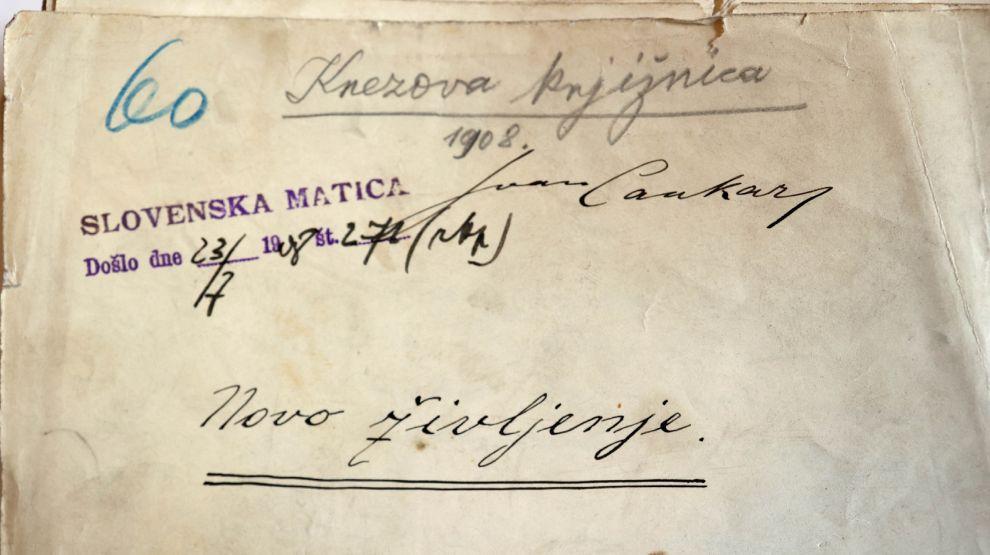 60
Knezova knjižnica
1908.
Ivan Cankar
SLOVENSKA MATICA
Došlo dne 23/7 1908 št. 272 (rkp)
Novo življenje.